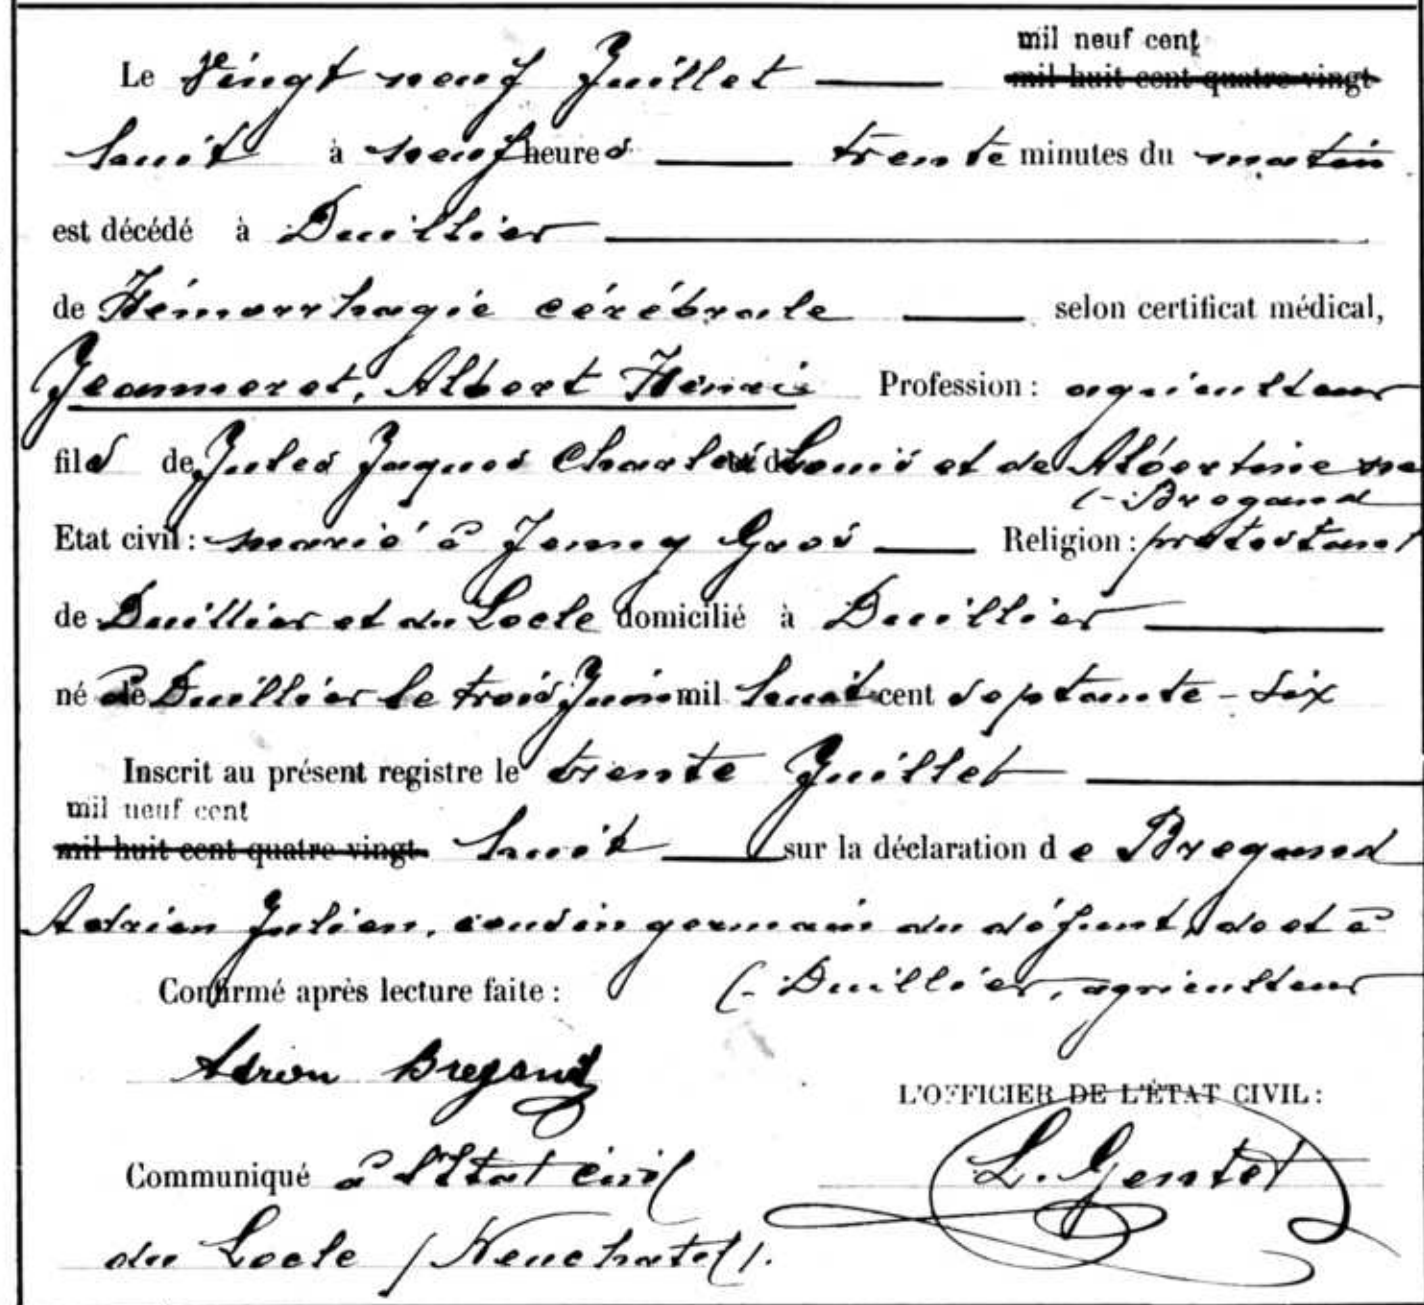 mil neuf cent
Le Vingt neuf Juillet mil huit cent quatre-vingt
huit à neuf heures trente minutes du matin
est décédé à Duillier
de Hémorrhagie cérébrale selon certificat médical,
Jeanneret, Albert Henri Profession : agriculteur
fils de Jules Jaques Charles Louis et de Albertine né
Bregand
Etat civil : marié à Jenny Gros Religion : protestant
de Duillier et du Locle domicilié à Duillier
né à Duillier le trois Juin mil huit cent septante-six
Inscrit au présent registre le trente Juillet
mil neuf cent
mil huit cent quatre-vingt huit sur la déclaration de Bregand
Adrien Julien, cousin germain du défunt, de et à
Confirmé après lecture faite : Duillier, agriculteur
Adrien Bregand
L'OFFICIER DE L'ÉTAT CIVIL :
Communiqué à l'Etat civil L. Gentet
du Locle (Neuchatel).